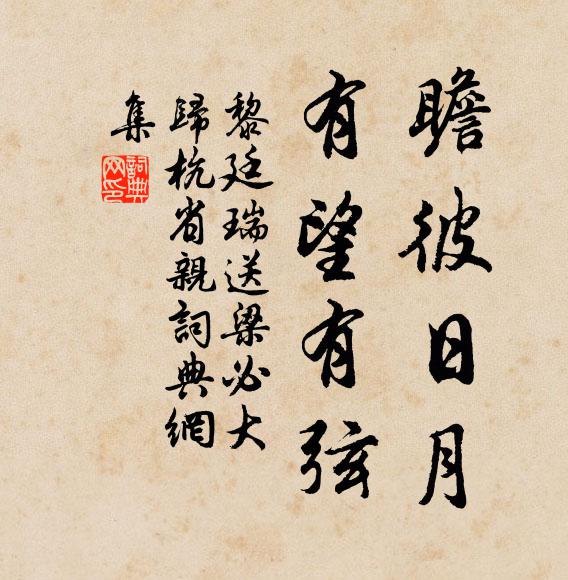 瞻彼日月
有望有弦
黎廷瑞送梁必大
歸杭省親詞典網
集
詞典网印